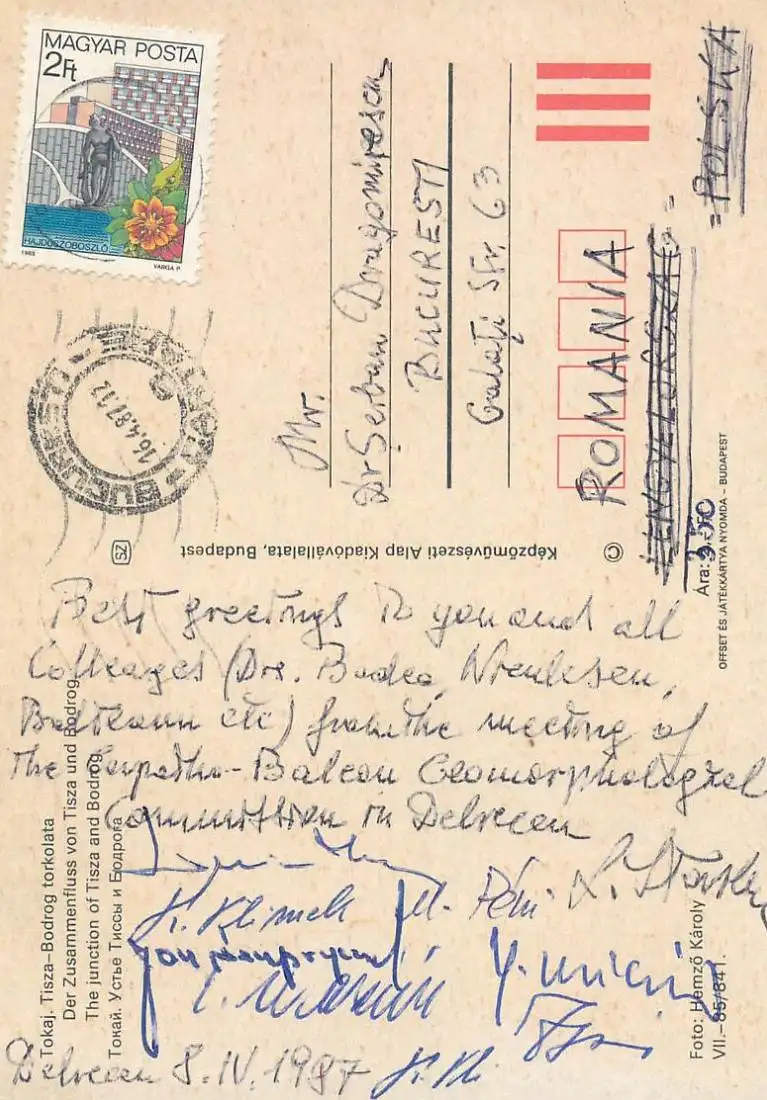 MAGYAR POSTA
2Ft
HAJDÚSZOBOSZLÓ
1983
VARGA P.
BUCUREȘTI
16.4.87.12
Mr.
Dr Șerban Dragomirescu
BUCUREȘTI
Galați Str. 63
ROMANIA
LENGYELORSZÁG
= POLSKA =
SZ
Képzőművészeti Alap Kiadóvállalata, Budapest
©
Ára: 3,50
OFFSET ÉS JÁTÉKKÁRTYA NYOMDA – BUDAPEST
Best greetings to you and all
Colleages (Drs. Badea,
etc) from the meeting of
The Carpatho-Balcan Geomorphological
Commission in Debrecen
L. Starkel
K. Klimek M. Pécsi
Debrecen 8.IV.1987
Tokaj. Tisza–Bodrog torkolata
Der Zusammenfluss von Tisza und Bodrog.
The junction of Tisza and Bodrog.
Токай. Устье Тиссы и Бодрога
Foto: Hemző Károly
VII.–85/841.